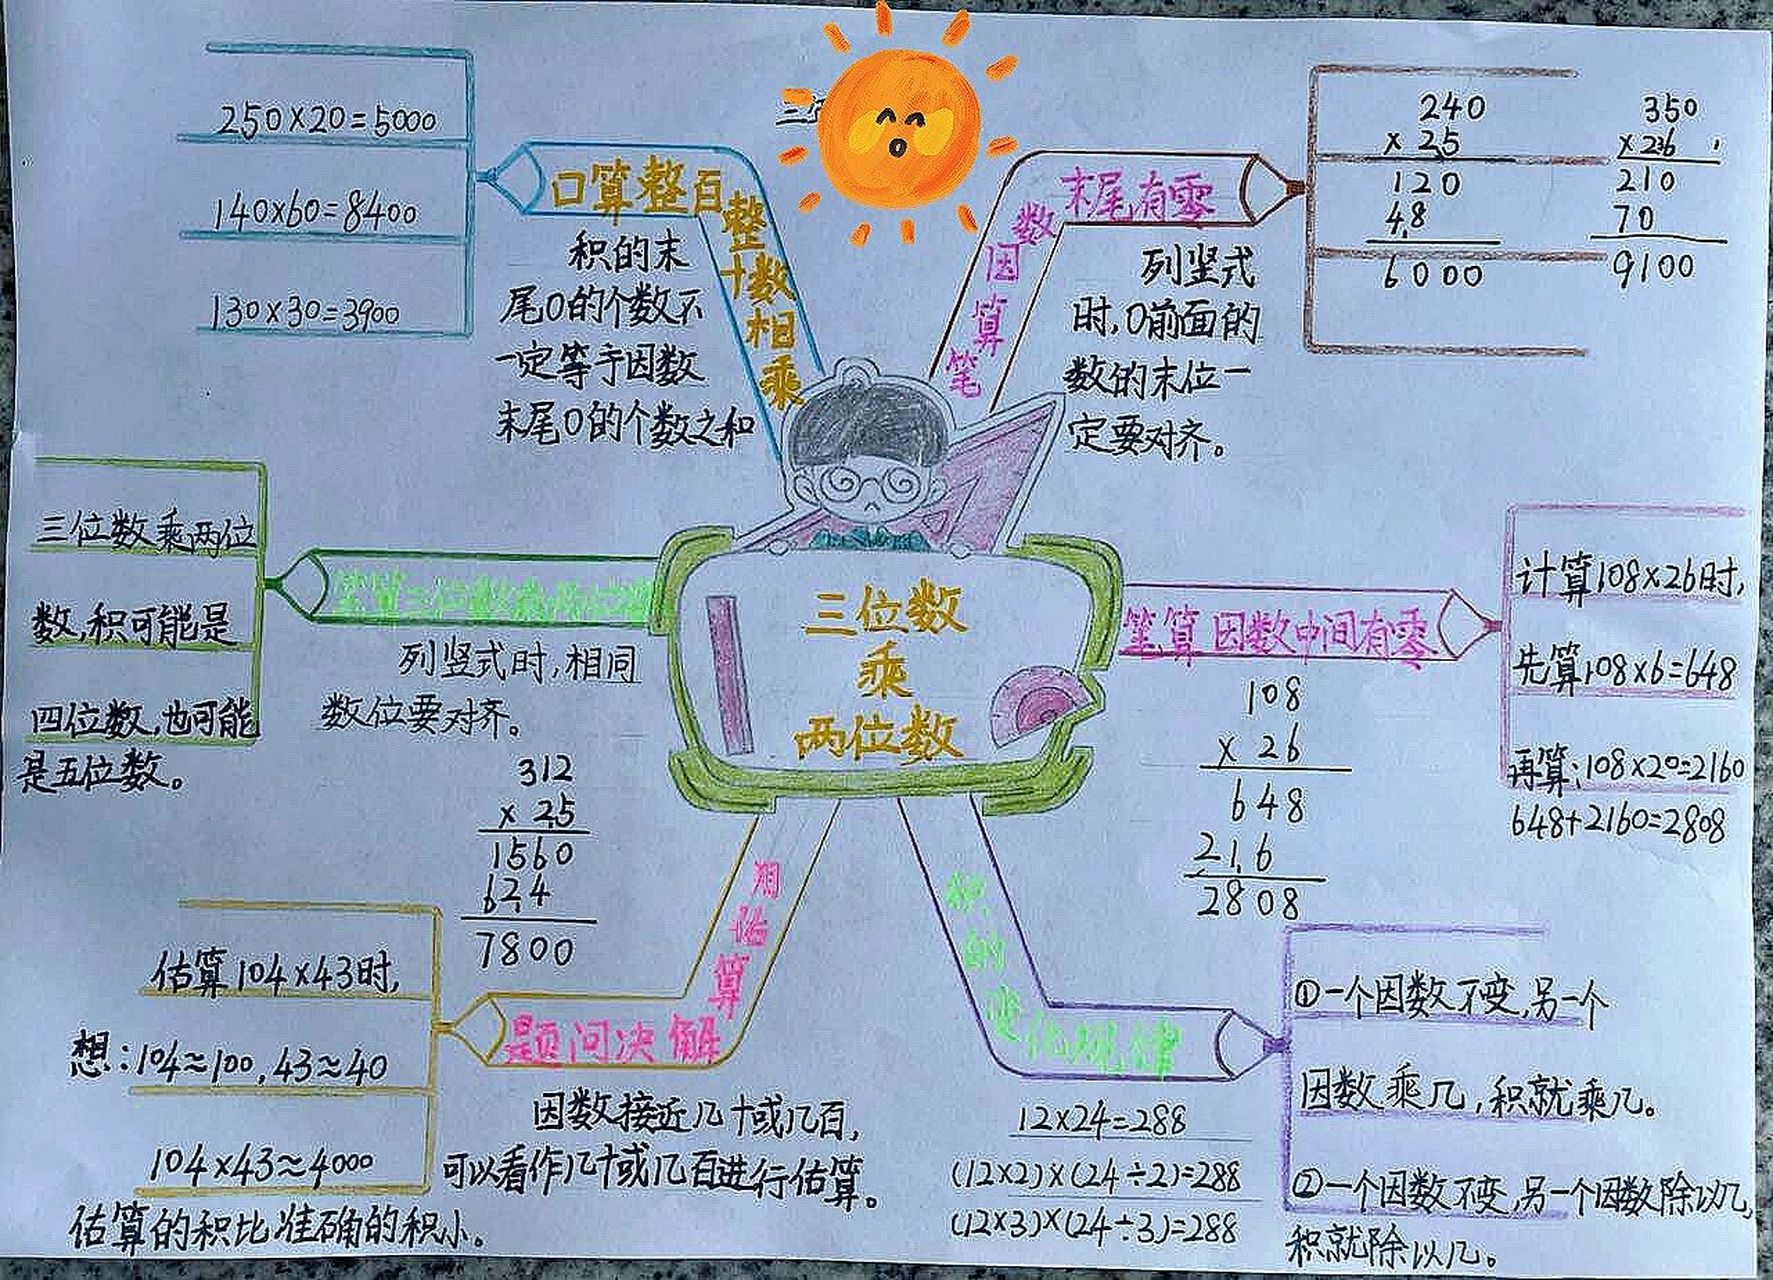 三位数
乘
两位数
口算整百整十数相乘
250×20=5000
140×60=8400
130×30=3900
积的末
尾0的个数不
一定等于因数
末尾0的个数之和
笔算因数末尾有零
240
×25
120
48
6000
350
×26
210
70
9100
列竖式
时,0前面的
数的末位一
定要对齐。
三位数乘两位
数,积可能是
四位数,也可能
是五位数。
列竖式时,相同
数位要对齐。
312
×25
1560
624
7800
笔算因数中间有零
108
×26
648
216
2808
计算108×26时,
先算108×6=648
再算:108×20=2160
648+2160=2808
用估算解决问题
估算104×43时,
想:104≈100,43≈40
104×43≈4000
估算的积比准确的积小。
因数接近几十或几百,
可以看作几十或几百进行估算。
积的变化规律
12×24=288
(12×2)×(24÷2)=288
(12×3)×(24÷3)=288
①一个因数不变,另一个
因数乘几,积就乘几。
②一个因数不变,另一个因数除以几,
积就除以几。